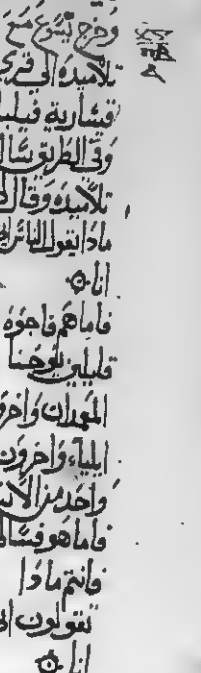 وخرج يسوع مع
تلاميده الى قري
قيسارية فيلبا
وفي الطريق سال
تلاميده وقال
مادا يقول الناس اني
انا
فاما هم فاجوبه
قايلين يوحنا
المعمدان واخرو
ايلياء واخرون
واحد من الانب
فاما هو فسال
فانتم مادا
تقولون اني
انا